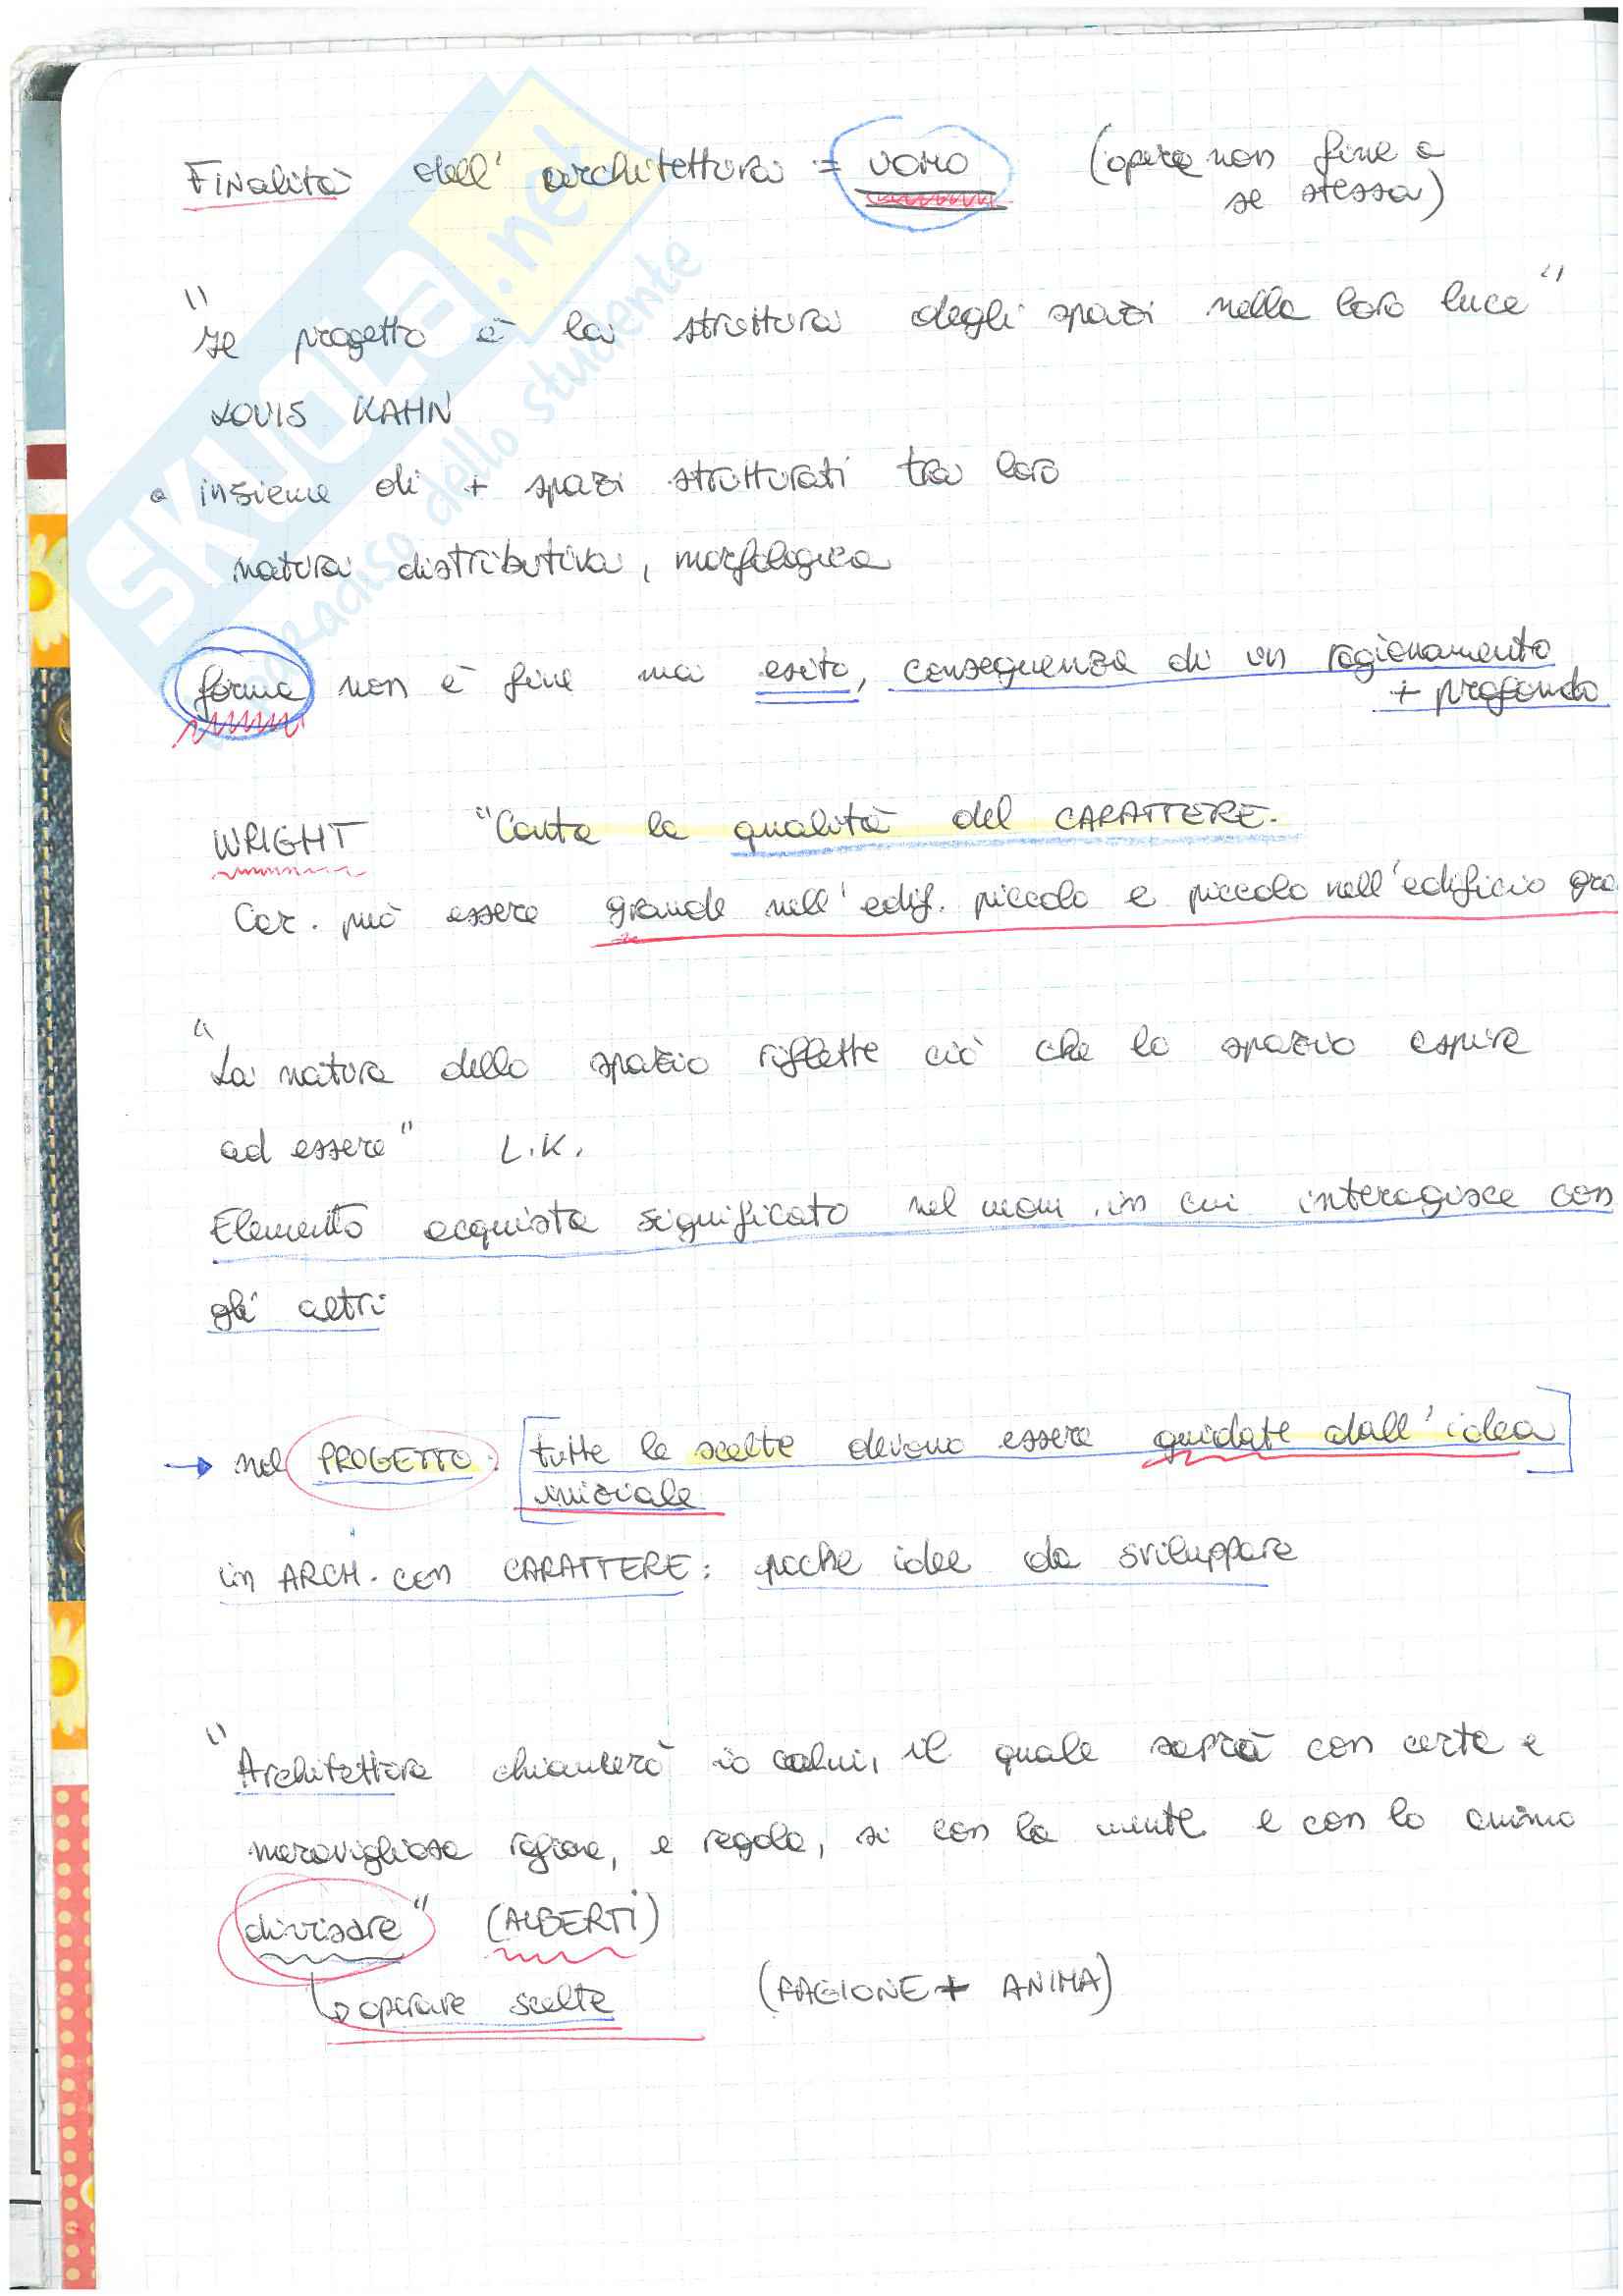 Finalità dell'architettura = uomo (opere non fine a
se stessa)
"Il progetto è la struttura degli spazi nella loro luce"
LOUIS KAHN
insieme di + spazi strutturati tra loro
natura distributiva, morfologica
forma non è fine ma esito, conseguenza di un ragionamento
+ profondo
WRIGHT "Conta la qualità del CARATTERE.
Car. può essere grande nell'edif. piccolo e piccolo nell'edificio gra
"La natura dello spazio riflette ciò che lo spazio aspira
ad essere" L.K.
Elemento acquista significato nel mom. in cui interagisce con
gli altri
→ nel PROGETTO: tutte le scelte devono essere guidate dall'idea
iniziale
in ARCH. con CARATTERE: poche idee da sviluppare
"Architettore chiamerò io colui, il quale saprà con certa e
meravigliosa ragione, e regola, sì con la mente e con lo animo
divisare" (ALBERTI)
↳ operare scelte (RAGIONE + ANIMA)
SKUOLA.net
paradiso dello studente